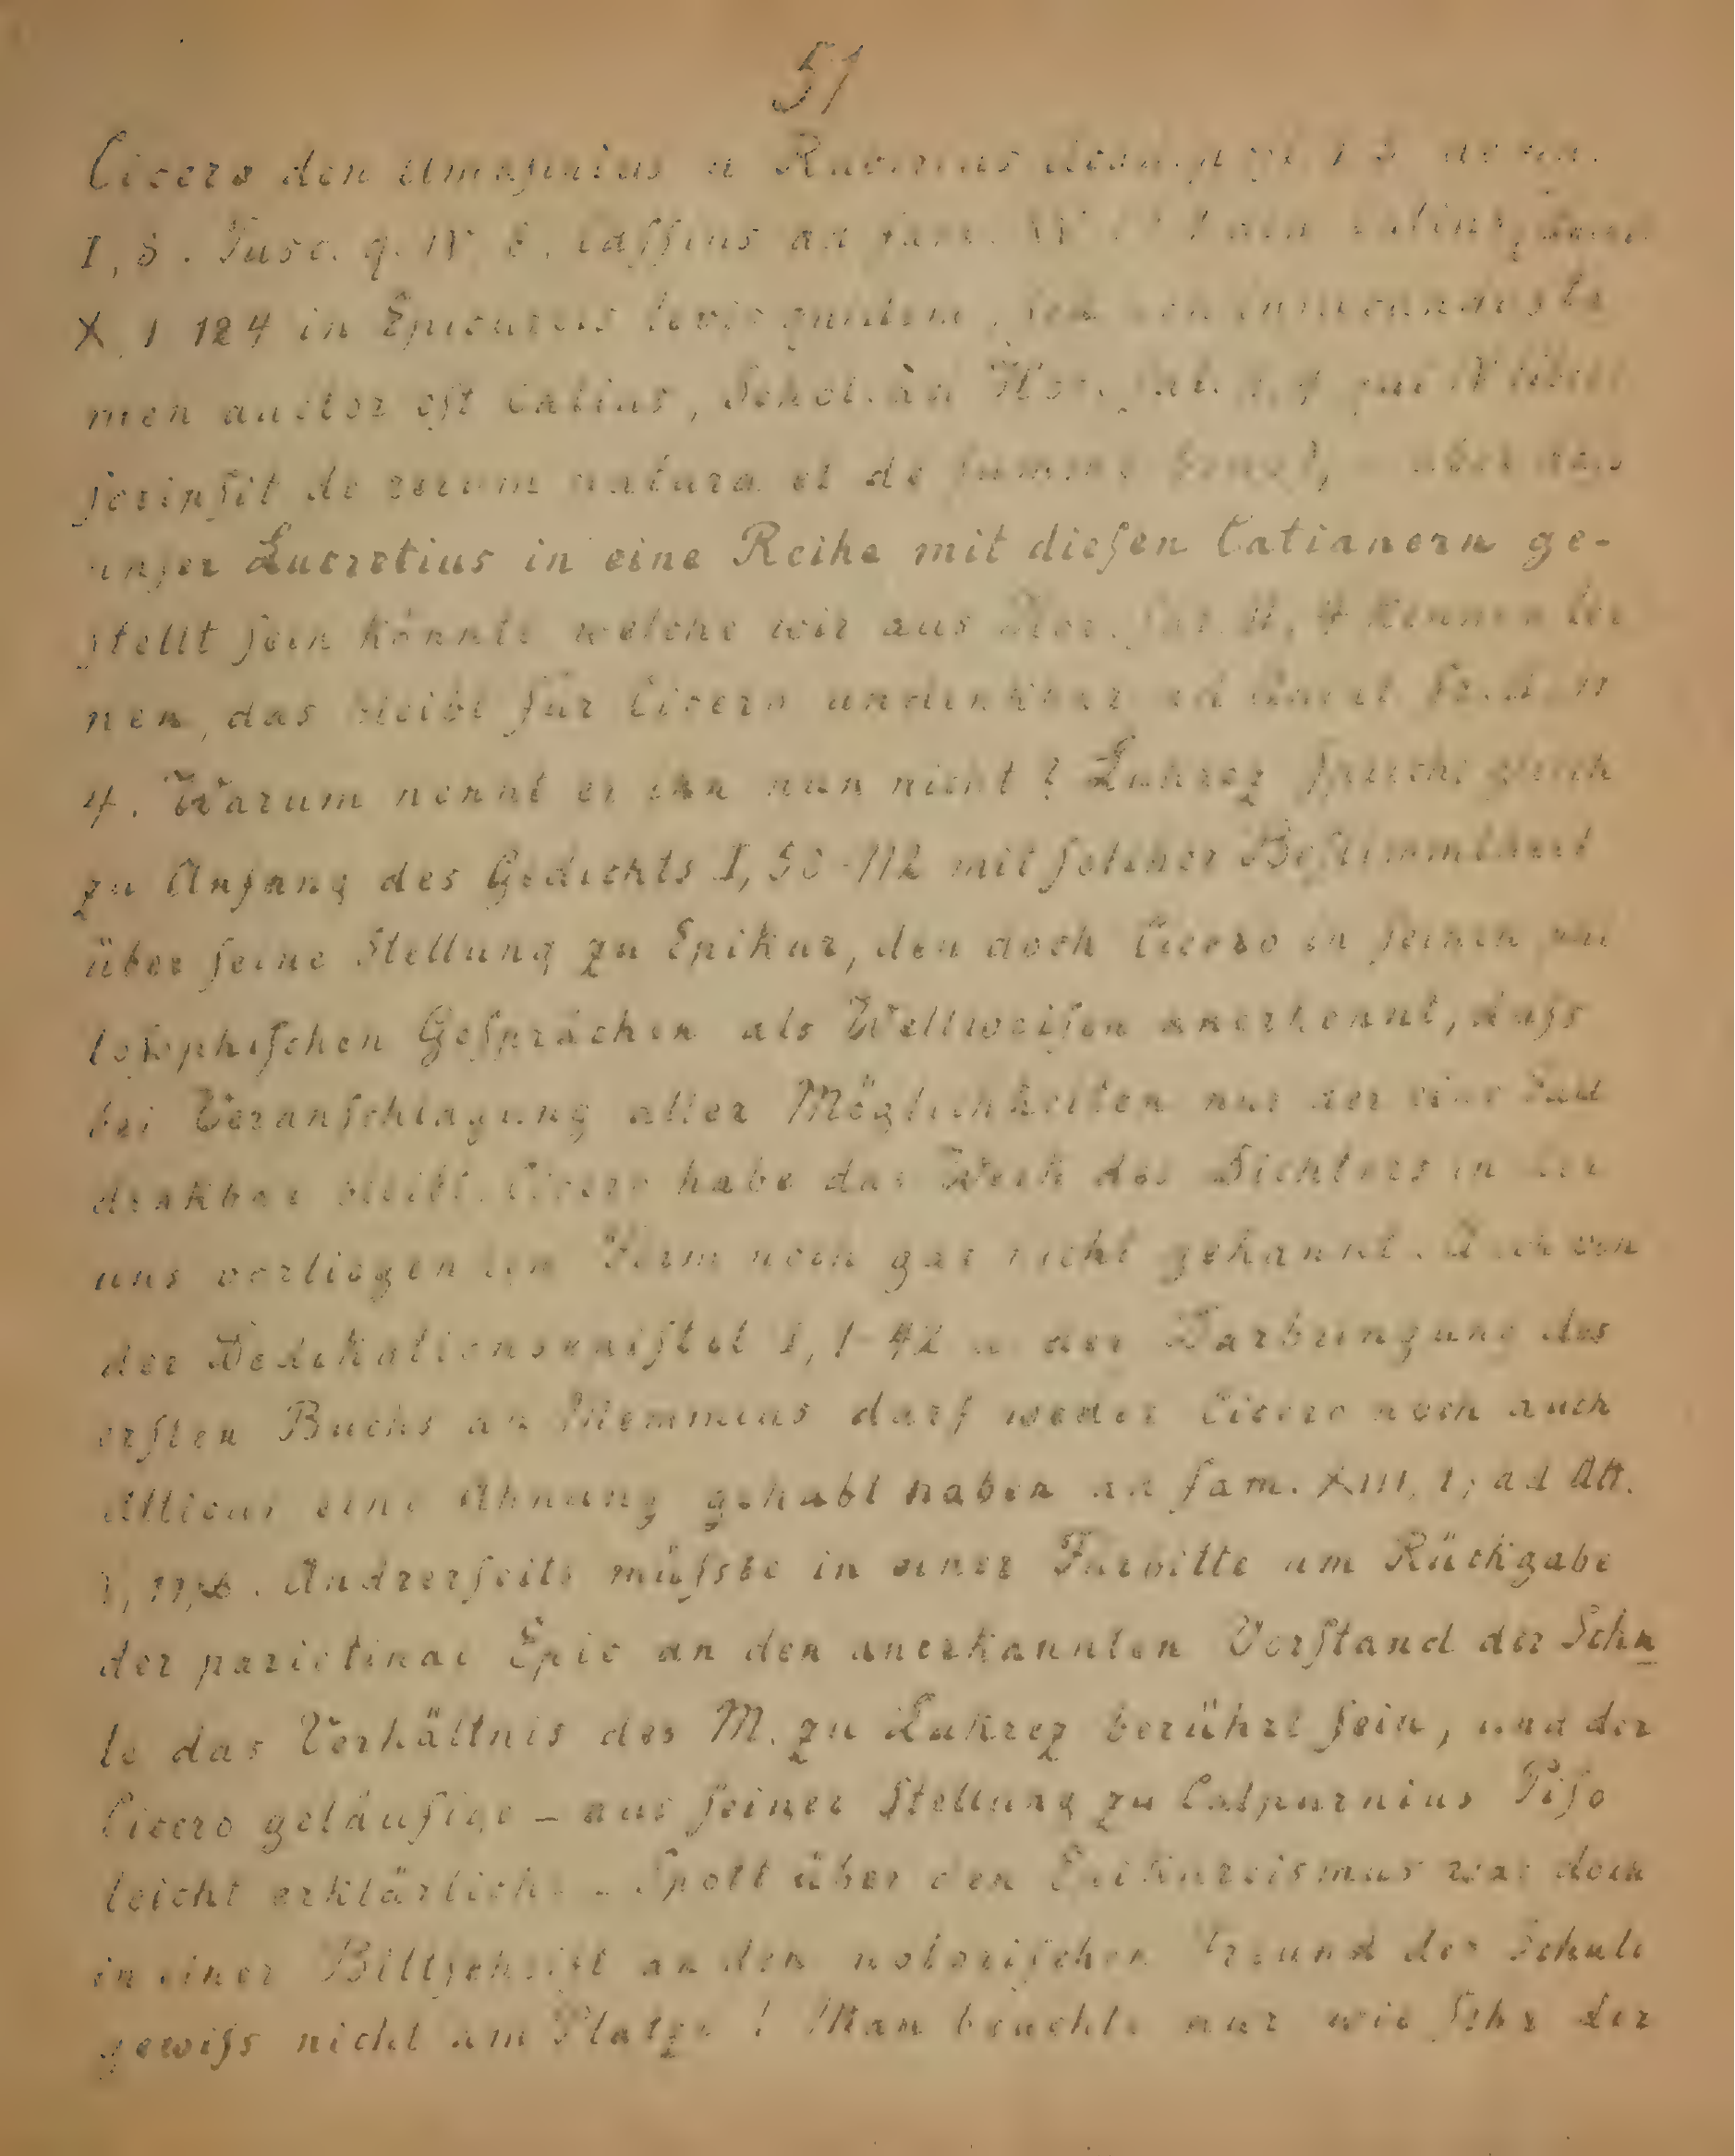 51
Cicero den Amafinius u Rabirius
I, 8. Tusc. q. IV 8. Cassius ad fam.
X, 1 124 in Epicureis levis quidem, sed non iniucundus ta
men auctor eſt Catius, Schol. ad Hor. Sat. qui IV libros
ſcripſit de rerum natura et de summo bono),
unſer Lucretius in eine Reihe mit dieſen Catianern ge-
ſtellt ſein könnte welche wir aus Hor. Sat. II, 4 kennen ler
nen, das bleibt für Cicero undenkbar
4. Warum nennt er ihn nun nicht? Lukrez ſpricht gleich
zu Anfang des Gedichts I, 50-112 mit ſolcher Beſtimmtheit
über ſeine Stellung zu Epikur, den doch Cicero in ſeinen phi
loſophiſchen Geſprächen als Weltweiſen anerkennt, daſs
bei Veranſchlagung aller Möglichkeiten nur der eine Fall
denkbar bleibt, Cicero habe das Werk des Dichters in der
uns vorliegenden Form noch gar nicht gekannt. Auch von
der Dedikationsepiſtel I, 1-42 u. der Darbringung des
erſten Buchs an Memmius darf weder Cicero noch auch
Atticus eine Ahnung gehabt haben ad fam. XIII, 1; ad Att.
V, 11,6. Andrerſeits müſste in einer Fürbitte um Rückgabe
der parietinae Epic an den anerkannten Vorſtand der Schu
le das Verhältnis des M. zu Lukrez berührt ſein, und der
Cicero geläufige – aus ſeiner Stellung zu Calpurnius Piſo
leicht erklärliche – Spott über den Epikureismus war doch
in einer Bittſchrift an den notoriſchen Freund der Schule
gewiſs nicht am Platze! Man beachte nur wie ſehr der